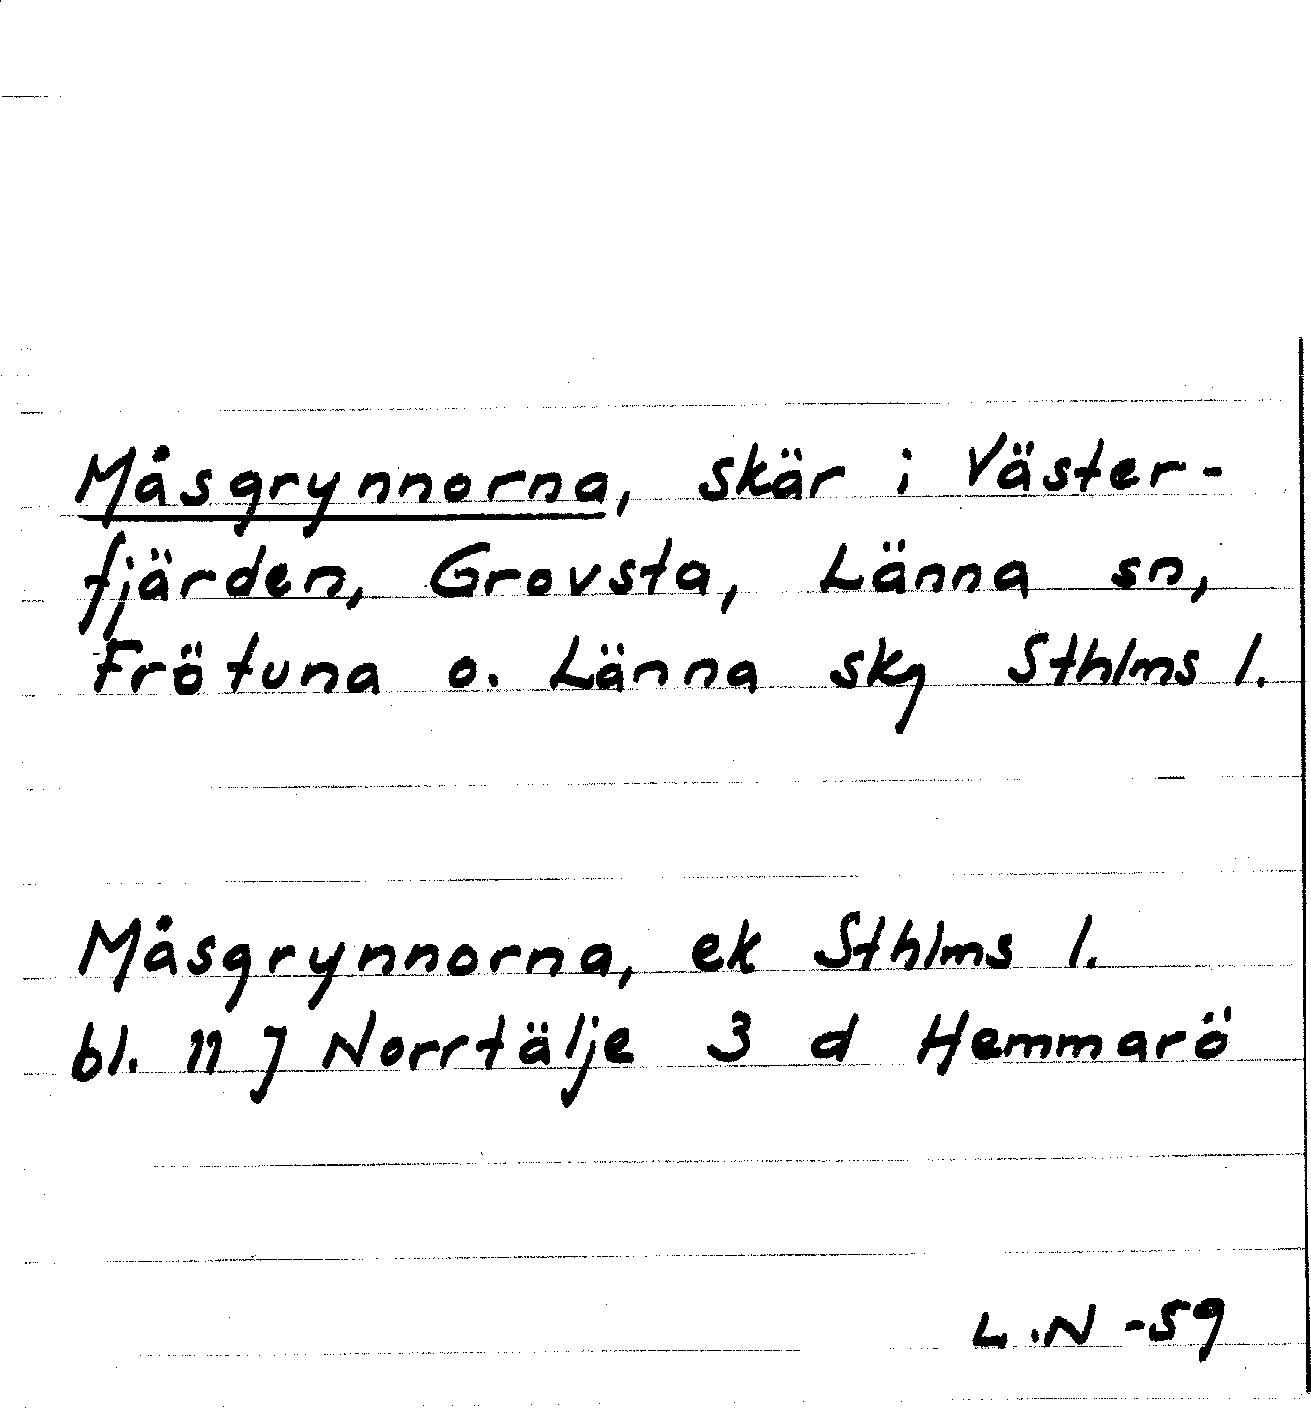 Måsgrynnorna, skär i Väster-
fjärden, Grovsta, Länna sn,
Frötuna o. Länna skg Sthlms l.
Måsgrynnorna, ek Sthlms l.
bl. 11 J Norrtälje 3 d Hemmarö
L.N -59